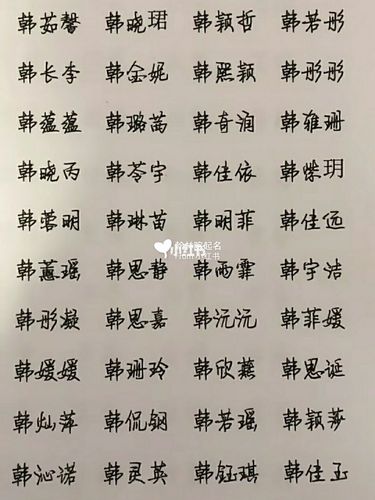 韩茹馨 韩晓珺 韩颖哲 韩若彤
韩长李 韩金妮 韩熙颖 韩彤彤
韩蕴蕴 韩璐茜 韩奇润 韩雅珊
韩晓丙 韩苓宇 韩佳依 韩紫玥
韩蓉明 韩琳苗 韩明菲 韩佳远
韩蕙瑶 韩思静 韩雨霏 韩宇洁
韩彤凝 韩思嘉 韩沅沅 韩菲媛
韩媛媛 韩珊玲 韩欣燕 韩思诞
韩灿萍 韩侃钢 韩若瑶 韩颖莎
韩沁诺 韩灵英 韩钰琪 韩佳玉
小红书